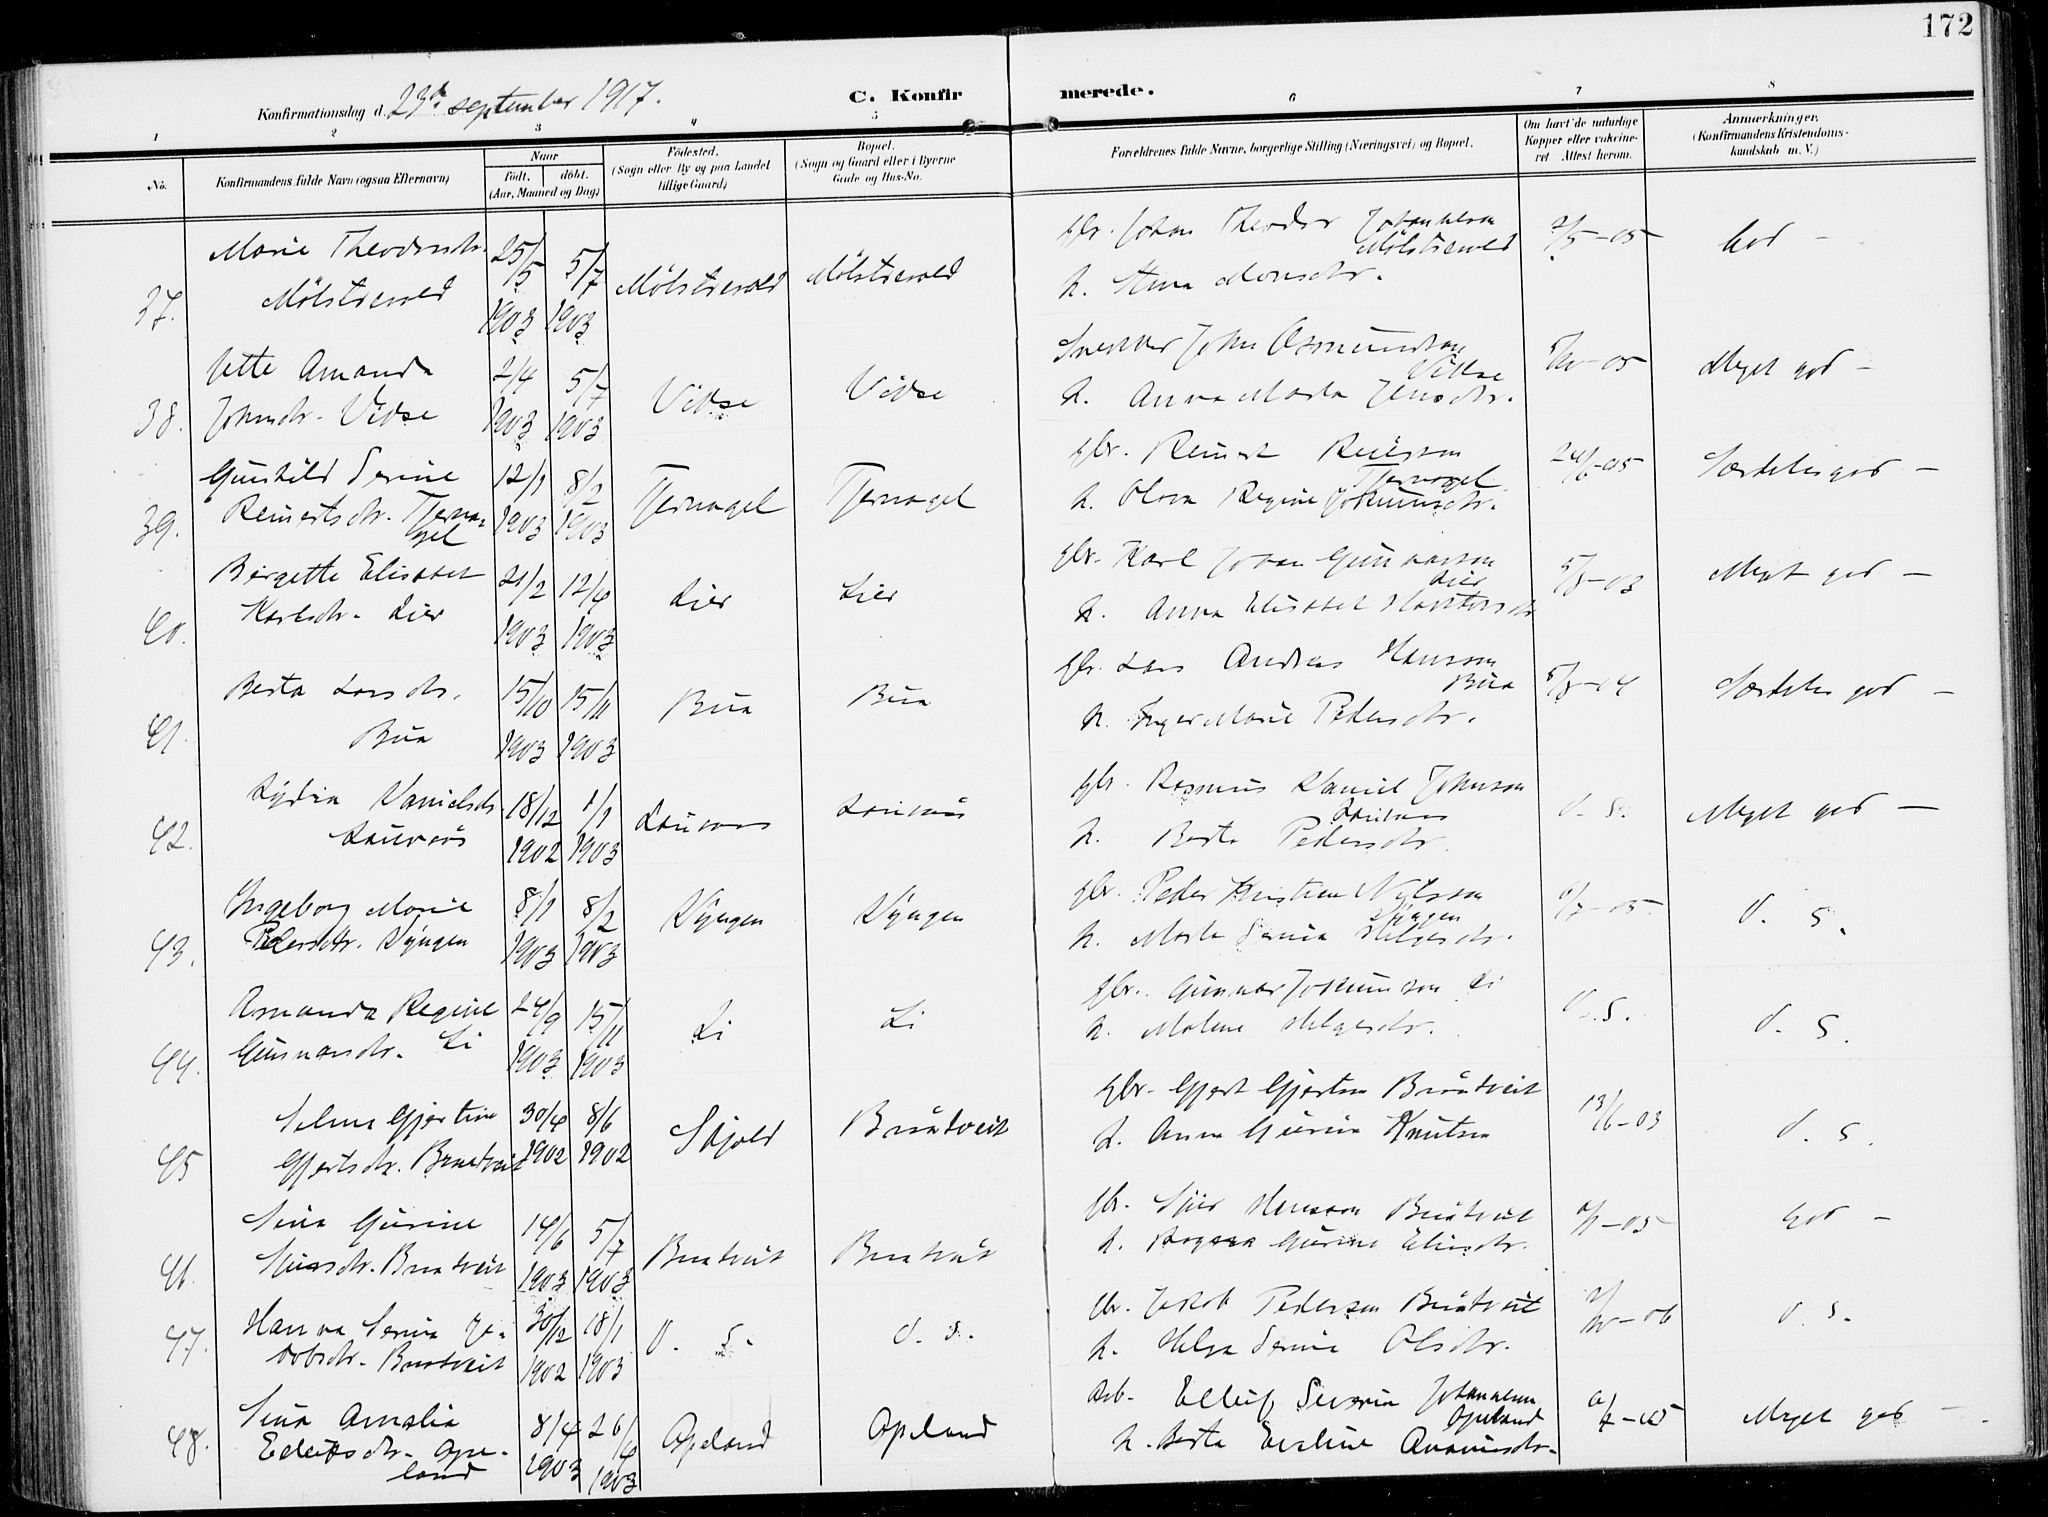 172
Konfirmationsdag d. 23de september 1917.
C. Konfirmerede.
1 2 3 4 5 6 7 8
No.
Konfirmandens fulde Navn (ogsaa Efternavn)
Naar
født. døbt.
(Aar, Maaned og Dag)
Fødested.
(Sogn eller By og paa Landet
tillige Gaard)
Bopæl.
(Sogn og Gaard eller i Byerne
Gade og Hus-No.
Forældrenes fulde Navne, borgerlige Stilling (Næringsvei) og Bopæl.
Om havt de naturlige
Kopper eller vakcine-
ret Attest herom.
Anmærkninger.
(Konfirmandens Kristendoms-
kundskab m. V.)
37. Marie Theodorsdr. Mølstrevold 25/5 1903 5/7 1903 Mølstrevold Mølstrevold
gbr. Johan Theodor Johannesen Mølstrevold
h. Stina Monsdr. /5-05 God -
38. Jette Amanda Johnsdr. Vikse 2/4 1903 5/7 1903 Vikse Vikse
Snekker John Osmundsen Vikse
h. Anna Marta Jensdr. /10-05 Meget god -
39. Gunhild Serine Reinertsdr. Tjernagel 12/1 1903 8/2 1903 Tjernagel Tjernagel
gbr. Reinert Tjernagel
h. Olava Regine Jokumsdr. 24/6-05 Særdeles god -
40. Birgette Elisabet Karlsdr. Lier 21/2 1903 12/4 1903 Lier Lier
gbr. Karl Johan Gunnarson Lier
h. Anna Elisabet 5/8-03 Meget god -
41. Berta Larsdr. Bua 15/10 1903 15/11 1903 Bua Bua
gbr. Lars Andreas Hansson Bua
h. Inger Marie Pedersdr. 5/8-04 Særdeles god -
42. Lydia Danielsdr. Lauvaas 18/12 1902 1/1 1903 Lauvaas Lauvaas
gbr. Rasmus Daniel Johnson Lauvaas
h. Berta Pedersdr. d. s. Meget god -
43. Ingeborg Marie Pedersdr. Dyngen 8/1 1903 8/2 1903 Dyngen Dyngen
gbr. Peder Kristian Nilsson Dyngen
h. Marta Serina Helgesdr. /7-05 d. s.
44. Amanda Regine Gunnarsdr. Li 24/9 1903 15/11 1903 Li Li
gbr. Gunnar Jokumson Li
h. Malene Helgesdr. d. s. d. s.
45 Selma Gjertine Gjertsdr. Bruntveit 30/4 1902 8/6 1902 Skjold Bruntveit
gbr. Gjert Gjertsen Bruntveit
h. Anna Gurina Knutsen 13/6-03 d. s.
46. Sina Gurine Bruntveit 14/6 1903 5/7 1903 Bruntveit Bruntveit
gbr. Hansson Bruntveit
h. Gurine Eliasdr. -05 God -
47. Hanna Serina Jakobsdr. Bruntveit 30/12 1902 18/1 1903 d. s. d. s.
gbr. Jakob Pederson Bruntveit
h. Helga Serine Olsdr. /10-06 d. s.
48. Sina Amalia Ellefsdr. Opeland 8/4 1903 26/4 1903 Opeland Opeland
Arb. Ellef Severin Johannesen Opeland
h. Berta Eveline Ananiasdr. -05 Meget god -